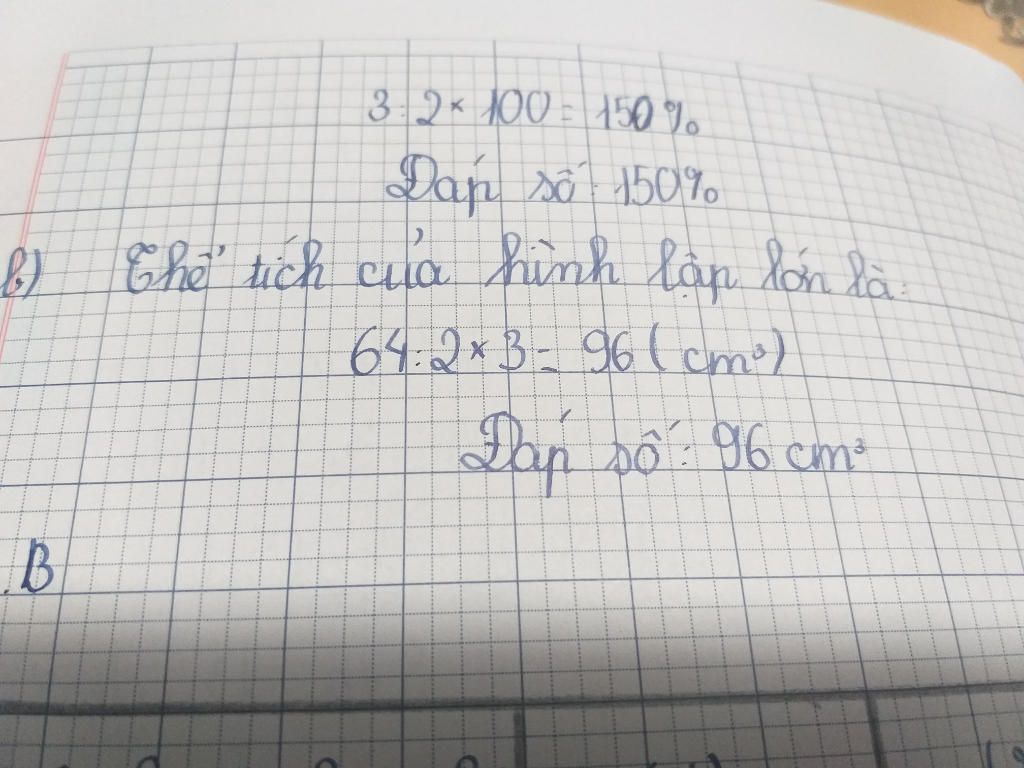 3 : 2 × 100 = 150%
Đáp số : 150%
b) Thể tích của hình lập lớn là:
64 : 2 × 3 = 96 ( cm³)
Đáp số : 96 cm³
. B